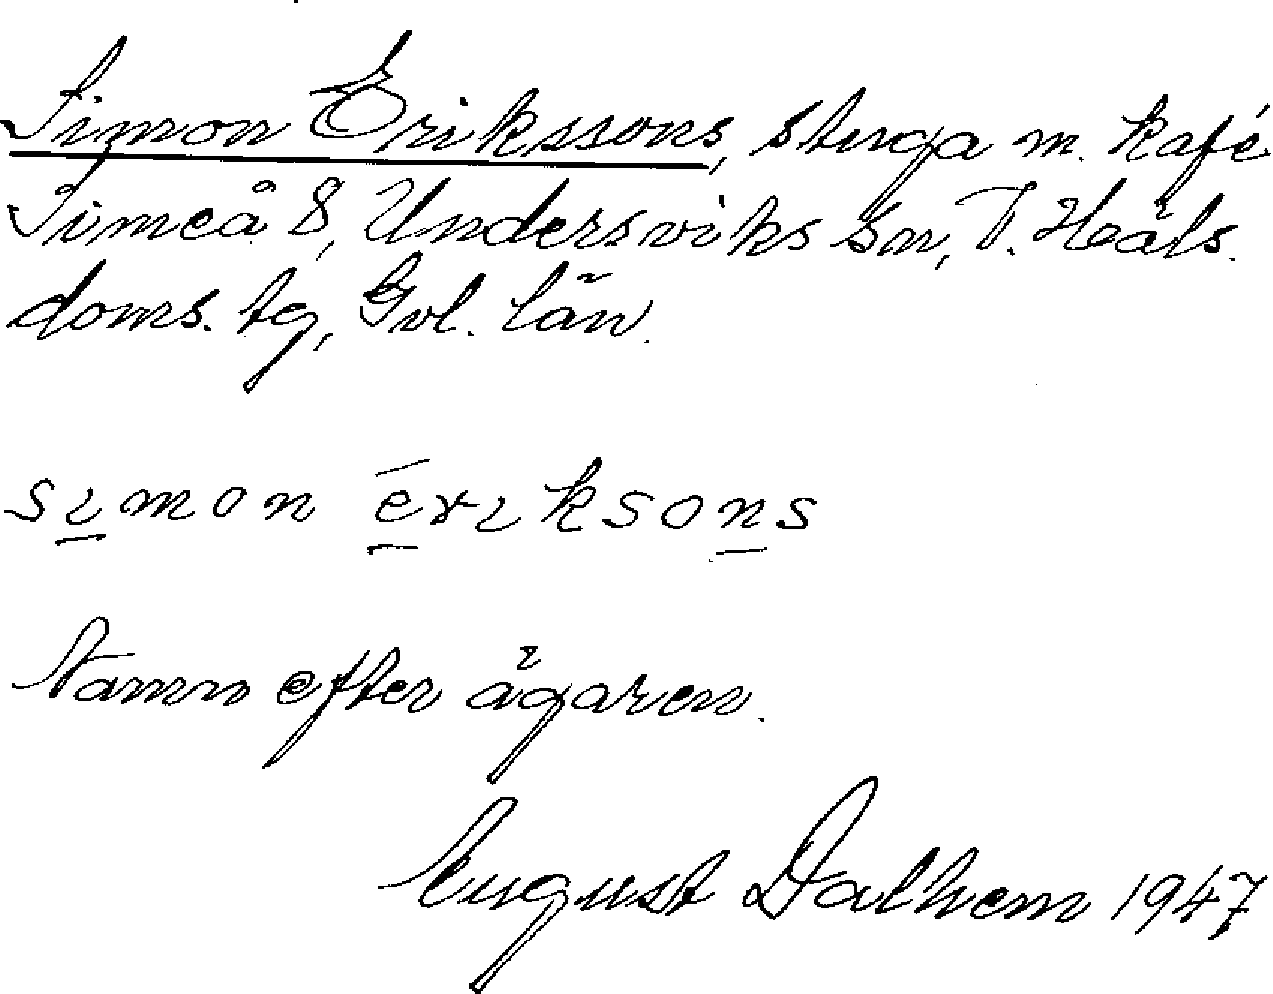 Simon Erikssons, stuga m. kafé
Simeå 8, Undersviks sn, V. Häls.
doms. tg, Gvl. län.
simon ériksons
Namn efter ägaren.
August Dalhem 1947